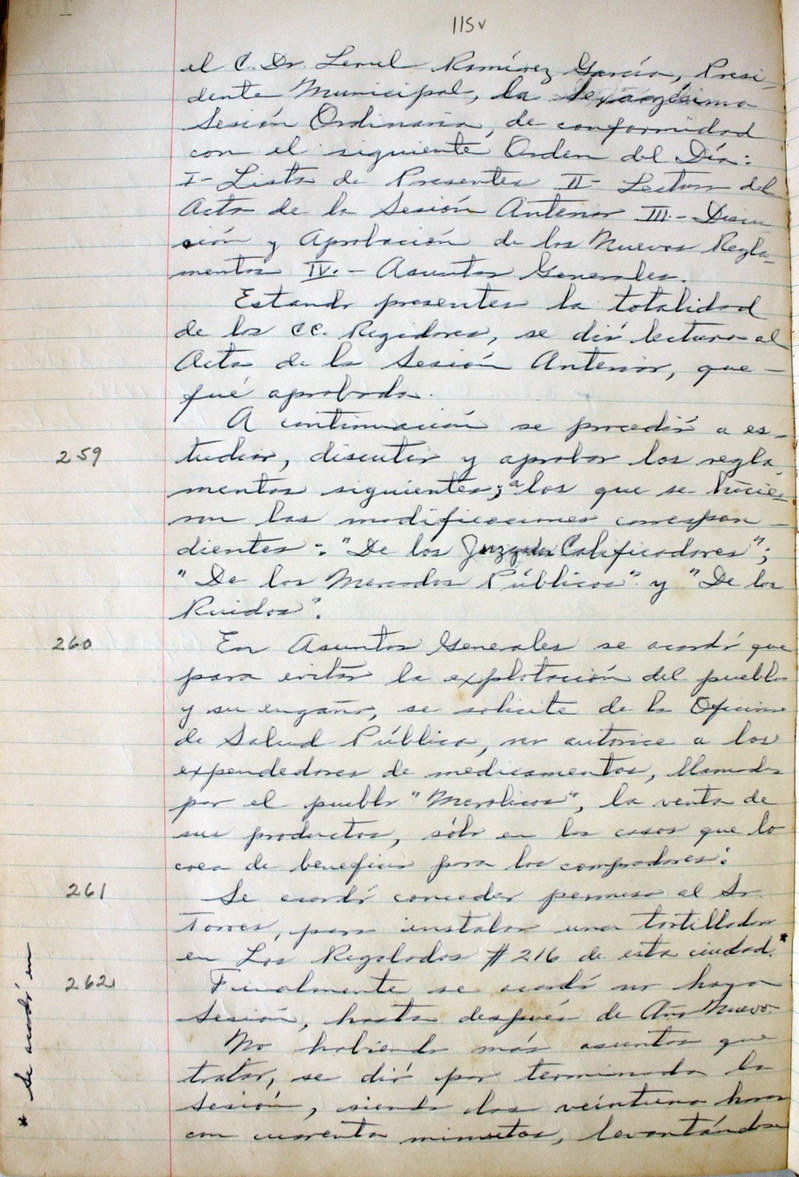 115v
el C. Dr. Leruel Ramírez García, Presi-
dente Municipal, la
Sesión Ordinaria, de conformidad
con el siguiente Orden del Día:
I- Lista de Presentes II- Lectura del
Acta de la Sesión Anterior III.- Discu-
sión y Aprobación de los Nuevos Regla-
mentos IV.- Asuntos Generales.
Estando presentes la totalidad
de los CC. Regidores, se dió lectura al
Acta de la Sesión Anterior, que-
fué aprobada.
A continuación se procedió a es-
259 tudiar, discutir y aprobar los regla-
mentos siguientes; a los que se hicie-
ron las modificaciones correspon-
dientes: "De los Juzgados Calificadores";
"De los Mercados Públicos" y "De los
Ruidos".
260 En Asuntos Generales se acordó que
para evitar la explotación del pueblo
y su engaño, se solicite de la Oficina
de Salud Pública, no autorice a los
expendedores de medicamentos, llamados
por el pueblo "Merolicos", la venta de
sus productos, sólo en los casos que lo
crea de beneficio para los compradores.
261 Se acordó conceder permiso al Sr.
Torres, para instalar una tortilladora
en Los Regalados # 216 de esta ciudad.*
262 Finalmente se acordó no haya
Sesión, hasta después de Año Nuevo.
No habiendo más asuntos que
tratar, se dió por terminada la
Sesión, siendo las veintiuna horas
con cuarenta minutos, levantándose
* Se acordó en